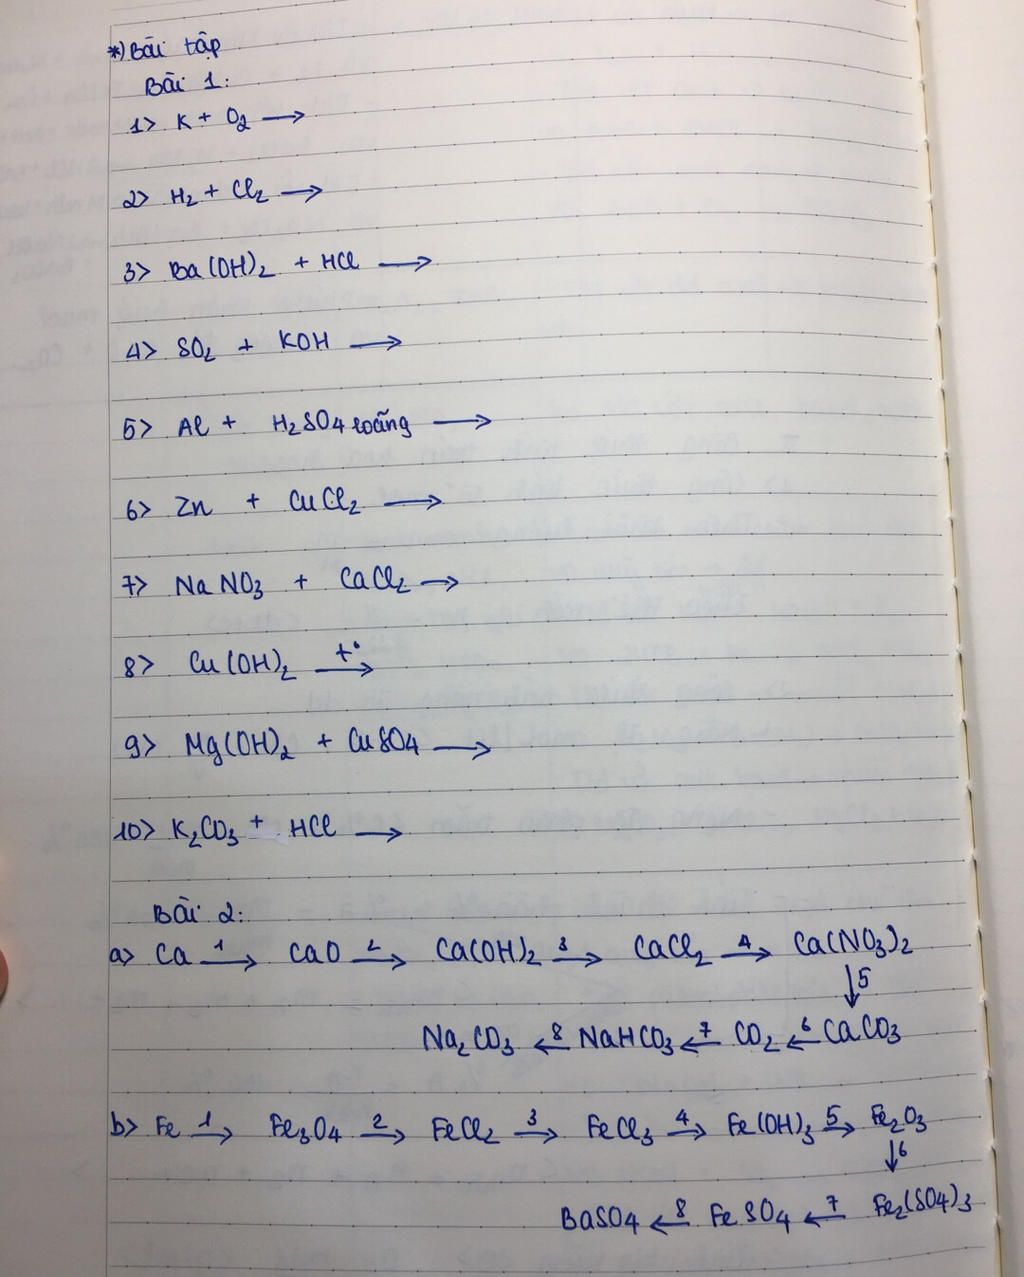 *) Bài tập
Bài 1:
1> K + O2 →
2> H2 + Cl2 →
3> Ba(OH)2 + HCl →
4> SO2 + KOH →
5> Al + H2SO4 loãng →
6> Zn + CuCl2 →
7> NaNO3 + CaCl2 →
8> Cu(OH)2 t° →
9> Mg(OH)2 + CuSO4 →
10> K2CO3 + HCl →
Bài 2:
a> Ca 1→ CaO 2→ Ca(OH)2 3→ CaCl2 4→ Ca(NO3)2
↓5
Na2CO3 ←8 NaHCO3 ←7 CO2 ←6 CaCO3
b> Fe 1→ Fe3O4 2→ FeCl2 3→ FeCl3 4→ Fe(OH)3 5→ Fe2O3
↓6
BaSO4 ←8 FeSO4 ←7 Fe2(SO4)3